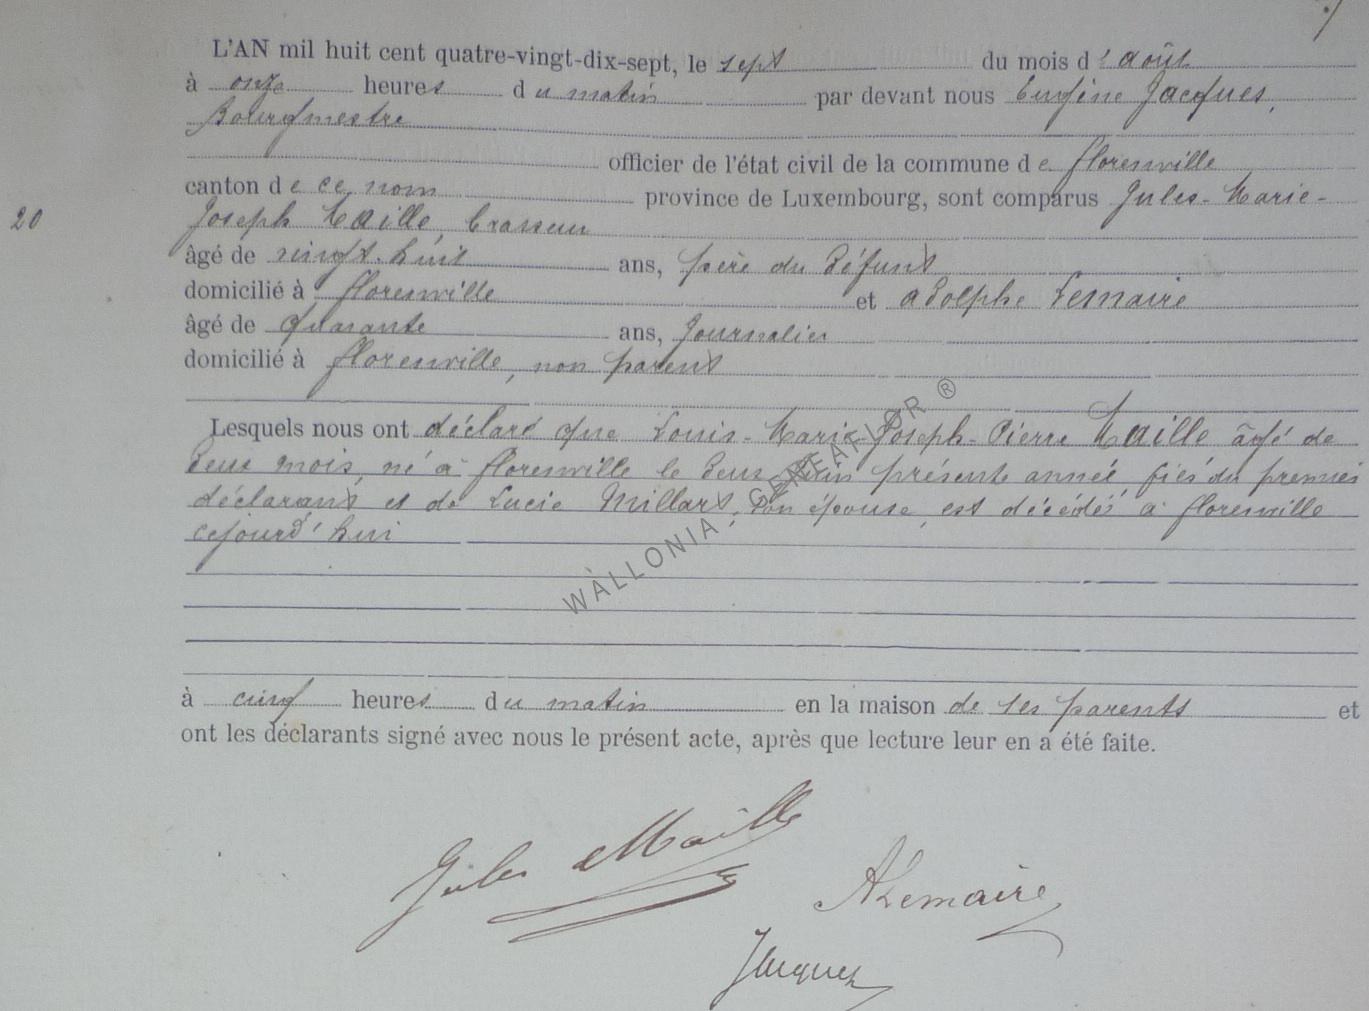 L'AN mil huit cent quatre-vingt-dix-sept, le sept du mois d'août
à onze heures du matin par devant nous Eugène Jacques,
Bourgmestre
officier de l'état civil de la commune de florenville
canton de ce nom province de Luxembourg, sont comparus Jules-Marie-
20 Joseph Maille, brasseur
âgé de vingt-huit ans, père du défunt
domicilié à florenville et adolphe Lemaire
âgé de quarante ans, Journalier
domicilié à florenville, non parent
Lesquels nous ont déclaré que Louis-Marie-Joseph-Pierre Maille âgé de
deux mois, né à florenville le deux juin présente année fils du premier
déclarant et de Lucie Millart, son épouse, est décédé à florenville
cejourd'hui
à cinq heures du matin en la maison de ses parents et
ont les déclarants signé avec nous le présent acte, après que lecture leur en a été faite.
Jules Maille
A Lemaire
Jacques
WALLONIA GENEAFIOR ®